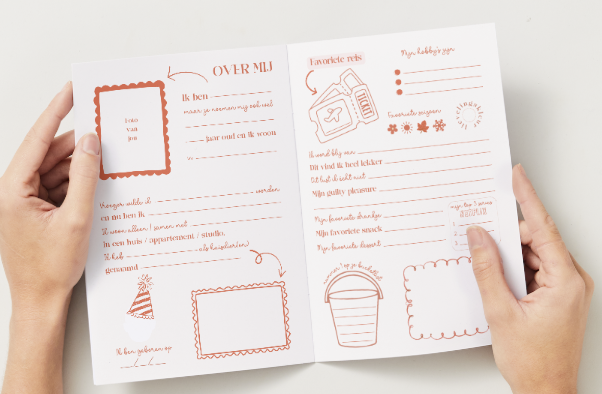 OVER MIJ
Foto
van
jou
Ik ben
maar je noemen mij ook wel
jaar oud en ik woon
Vroeger wilde ik worden
en nu ben ik
Ik woon alleen / samen met
In een huis / appartement / studio.
Ik heb als huisdier(en)
genaamd
Ik ben geboren op
Favoriete reis
TICKET
Mijn hobby's zijn
Favoriete seizoen
Ik word blij van
Dit vind ik heel lekker
Dit lust ik echt niet
Mijn guilty pleasure
Mijn favoriete drankje
Mijn favoriete snack
Mijn favoriete dessert
mijn top 3 series